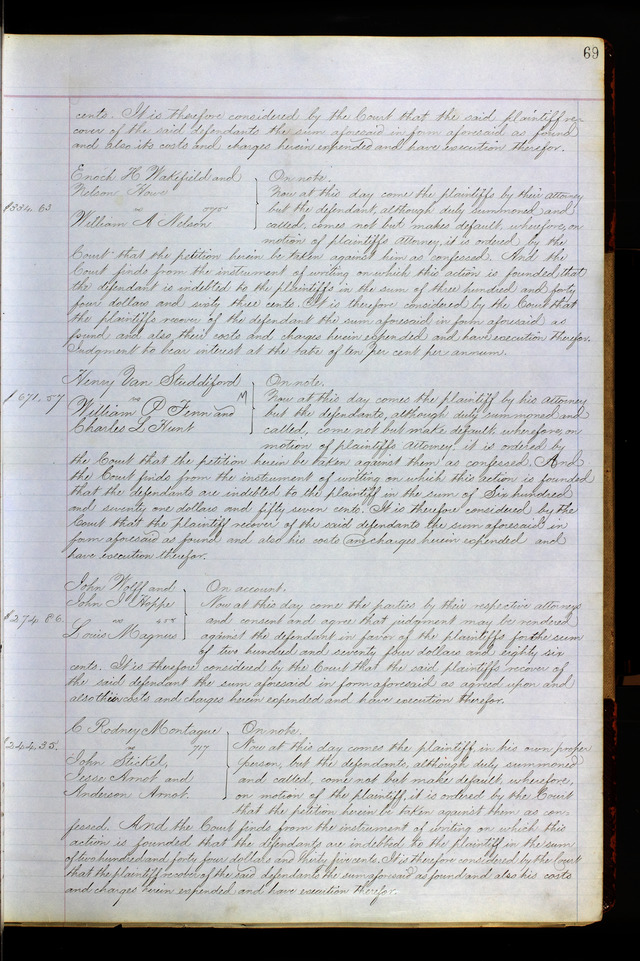 69
cents. It is therefore considered by the Court that the said plaintiff re-
cover of the said defendants the sum aforesaid in form aforesaid as found
and also its costs and charges herein expended and have execution therefor.
Enoch H Wakefield and } On note.
Nelson Howe Now at this day come the plaintiffs by their attorney
$344.63 vs but the defendant, although duly summoned and
William A Nelson called, comes not but makes default, wherefore, on
motion of plaintiffs attorney, it is ordered by the
Court that the petition herein be taken against him as confessed. And the
Court finds from the instrument of writing on which this action is founded that
the defendant is indebted to the plaintiffs in the sum of three hundred and forty
four dollars and sixty three cents. It is therefore considered by the Court that
the plaintiffs recover of the defendant the sum aforesaid in form aforesaid as
found and also their costs and charges herein expended and have execution therefor.
Judgment to bear interest at the rate of ten per cent per annum.
Henry Van Studdiford } On note.
$671.57 vs M Now at this day comes the plaintiff by his attorney
William P Fenn and but the defendants, although duly summoned and
Charles L Hunt called, come not but make default, wherefore, on
motion of plaintiffs attorney it is ordered by
the Court that the petition herein be taken against them as confessed. And
the Court finds from the instrument of writing on which this action is founded
that the defendants are indebted to the plaintiff in the sum of Six hundred
and seventy one dollars and fifty seven cents. It is therefore considered by the
Court that the plaintiff recover of the said defendants the sum aforesaid in
form aforesaid as found and also his costs and charges herein expended and
have execution therefor.
John Wolff and } On account.
John I Hoppe Now at this day come the parties by their respective attorneys
$274.86. vs and consent and agree that judgment may be rendered
Louis Magnus against the defendant in favor of the plaintiffs for the sum
of two hundred and seventy four dollars and eighty six
cents. It is therefore considered by the Court that the said plaintiffs recover of
the said defendant the sum aforesaid in form aforesaid as agreed upon and
also their costs and charges herein expended and have execution therefor.
C Rodney Montague } On note.
$244.35. vs 717 Now at this day comes the plaintiff, in his own proper
John Stickel, person, but the defendants, although duly summoned
Jesse Arnot and and called, come not but make default, wherefore,
Anderson Arnot. on motion of the plaintiff, it is ordered by the Court
that the petition herein be taken against them as con-
fessed. And the Court finds from the instrument of writing on which this
action is founded that the defendants are indebted to the plaintiff in the sum
of two hundred and forty four dollars and thirty five cents. It is therefore considered by the Court
that the plaintiff recover of the said defendants the sum aforesaid as found and also his costs
and charges herein expended and have execution therefor.